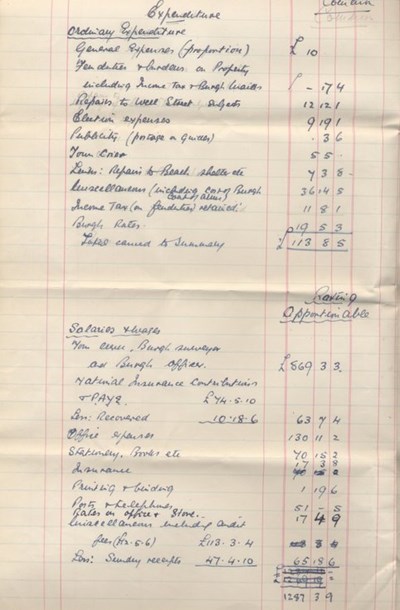 Common
Expenditure
Ordinary Expenditure
General Expenses (proportion) £ 10
Feuduties & burdens on Property
including Income Tax & Burgh Rates - 17 4
Repairs to West Street subjects 12 12 1
Election expenses 9 19 1
Publicity (postage on guides) - 3 6
Town Crier 5 5 -
Repairs to Beach shelter etc 7 3 8
Miscellaneous (including cost of Burgh
coat of arms) 36 14 5
Income Tax (on feuduties) retained 11 8 1
Burgh Rates 19 5 3
Total carried to Summary £ 113 8 5
Rating
Apportionable
Salaries & Wages
Town Clerk, Burgh Surveyor
and Burgh Officer. £869 3 3.
National Insurance Contributions
& PAYE £74.5.10
Less: Recovered 10.18.6 63 7 4
Office expenses 130 11 2
Stationery, Books etc 70 15 2
Insurance 17 3 8
Printing & binding 1 19 6
Posts & telephones 51 - 5
Rates on office & Store. 17 4 9
Miscellaneous including audit
fee £113.3.4
Less: Sundry receipts 47.4.10 65 18 6
1287 3 9